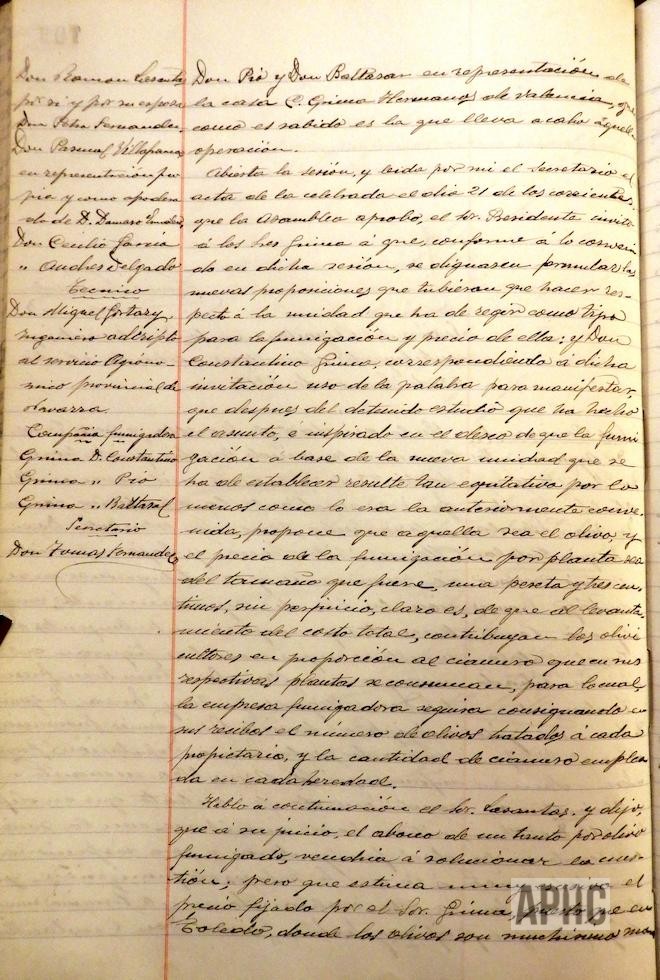 Don Ramon Lasantas
por si y por su esposa
Don Felix Fernandez
Don Pascual Villafranca
en representación pro
pia y como apodera
do de D. Damaso
Don Cecilio García
" Andres Delgado
Tecnico
Don Miguel
Ingeniero adscripto
al servicio Agróno-
mico provincial de
Navarra.
Compañia fumigadora
Grima D. Constantino
Grima " Pio
Grima " Baltasar
Secretario
Don Tomas Fernandez
Don Pio y Don Baltasar en representación de
la casa C. Grima Hermanos de Valencia, que
como es sabido es la que lleva a cabo aquella
operación.
Abierta la sesión, y leida por mi el Secretario el
acta de la celebrada el dia 21 de los corrientes,
que la Asamblea aprobo, el Sr. Presidente invitó
á los Sres Grima á que, conforme á lo conveni
do en dicha sesión, se dignasen formular las
nuevas proposiciones que tubieran que hacer res-
pecto á la unidad que ha de regir como tipo
para la fumigación y precio de ella; y Don
Constantino Grima, correspondiendo á dicha
invitación uso de la palabra para manifestar,
que despues del detenido estudio que ha hecho
el asunto, é inspirado en el deseo de que la fumi
gación á base de la nueva unidad que se
ha de establecer resulte tan equitativa por lo
menos como lo era la anteriormente conve
nida, propone que aquella sea el olivo, y
el precio de la fumigación por planta sea
del tamaño que fuere, una peseta y tres cen
timos, sin perjuicio, claro es, de que al levanta-
miento del costo total, contribuyan los olivi
cultores en proporción al cianuro que en sus
respectivas plantas se consuman, para lo cual,
la empresa fumigadora seguira consignando en
sus recibos el número de olivos tratados á cada
propietario, y la cantidad de cianuro emplea
da en cada heredad.
Habló á continuación el Sr. Lasantas. y dijo,
que á su juicio, el abono de un tanto por olivo
fumigado, vendria á solucionar la cues-
tión; pero que estima muy el
precio fijado por el Sor. Grima, puesto que en
Toledo, donde los olivos son muchisimo
APHC